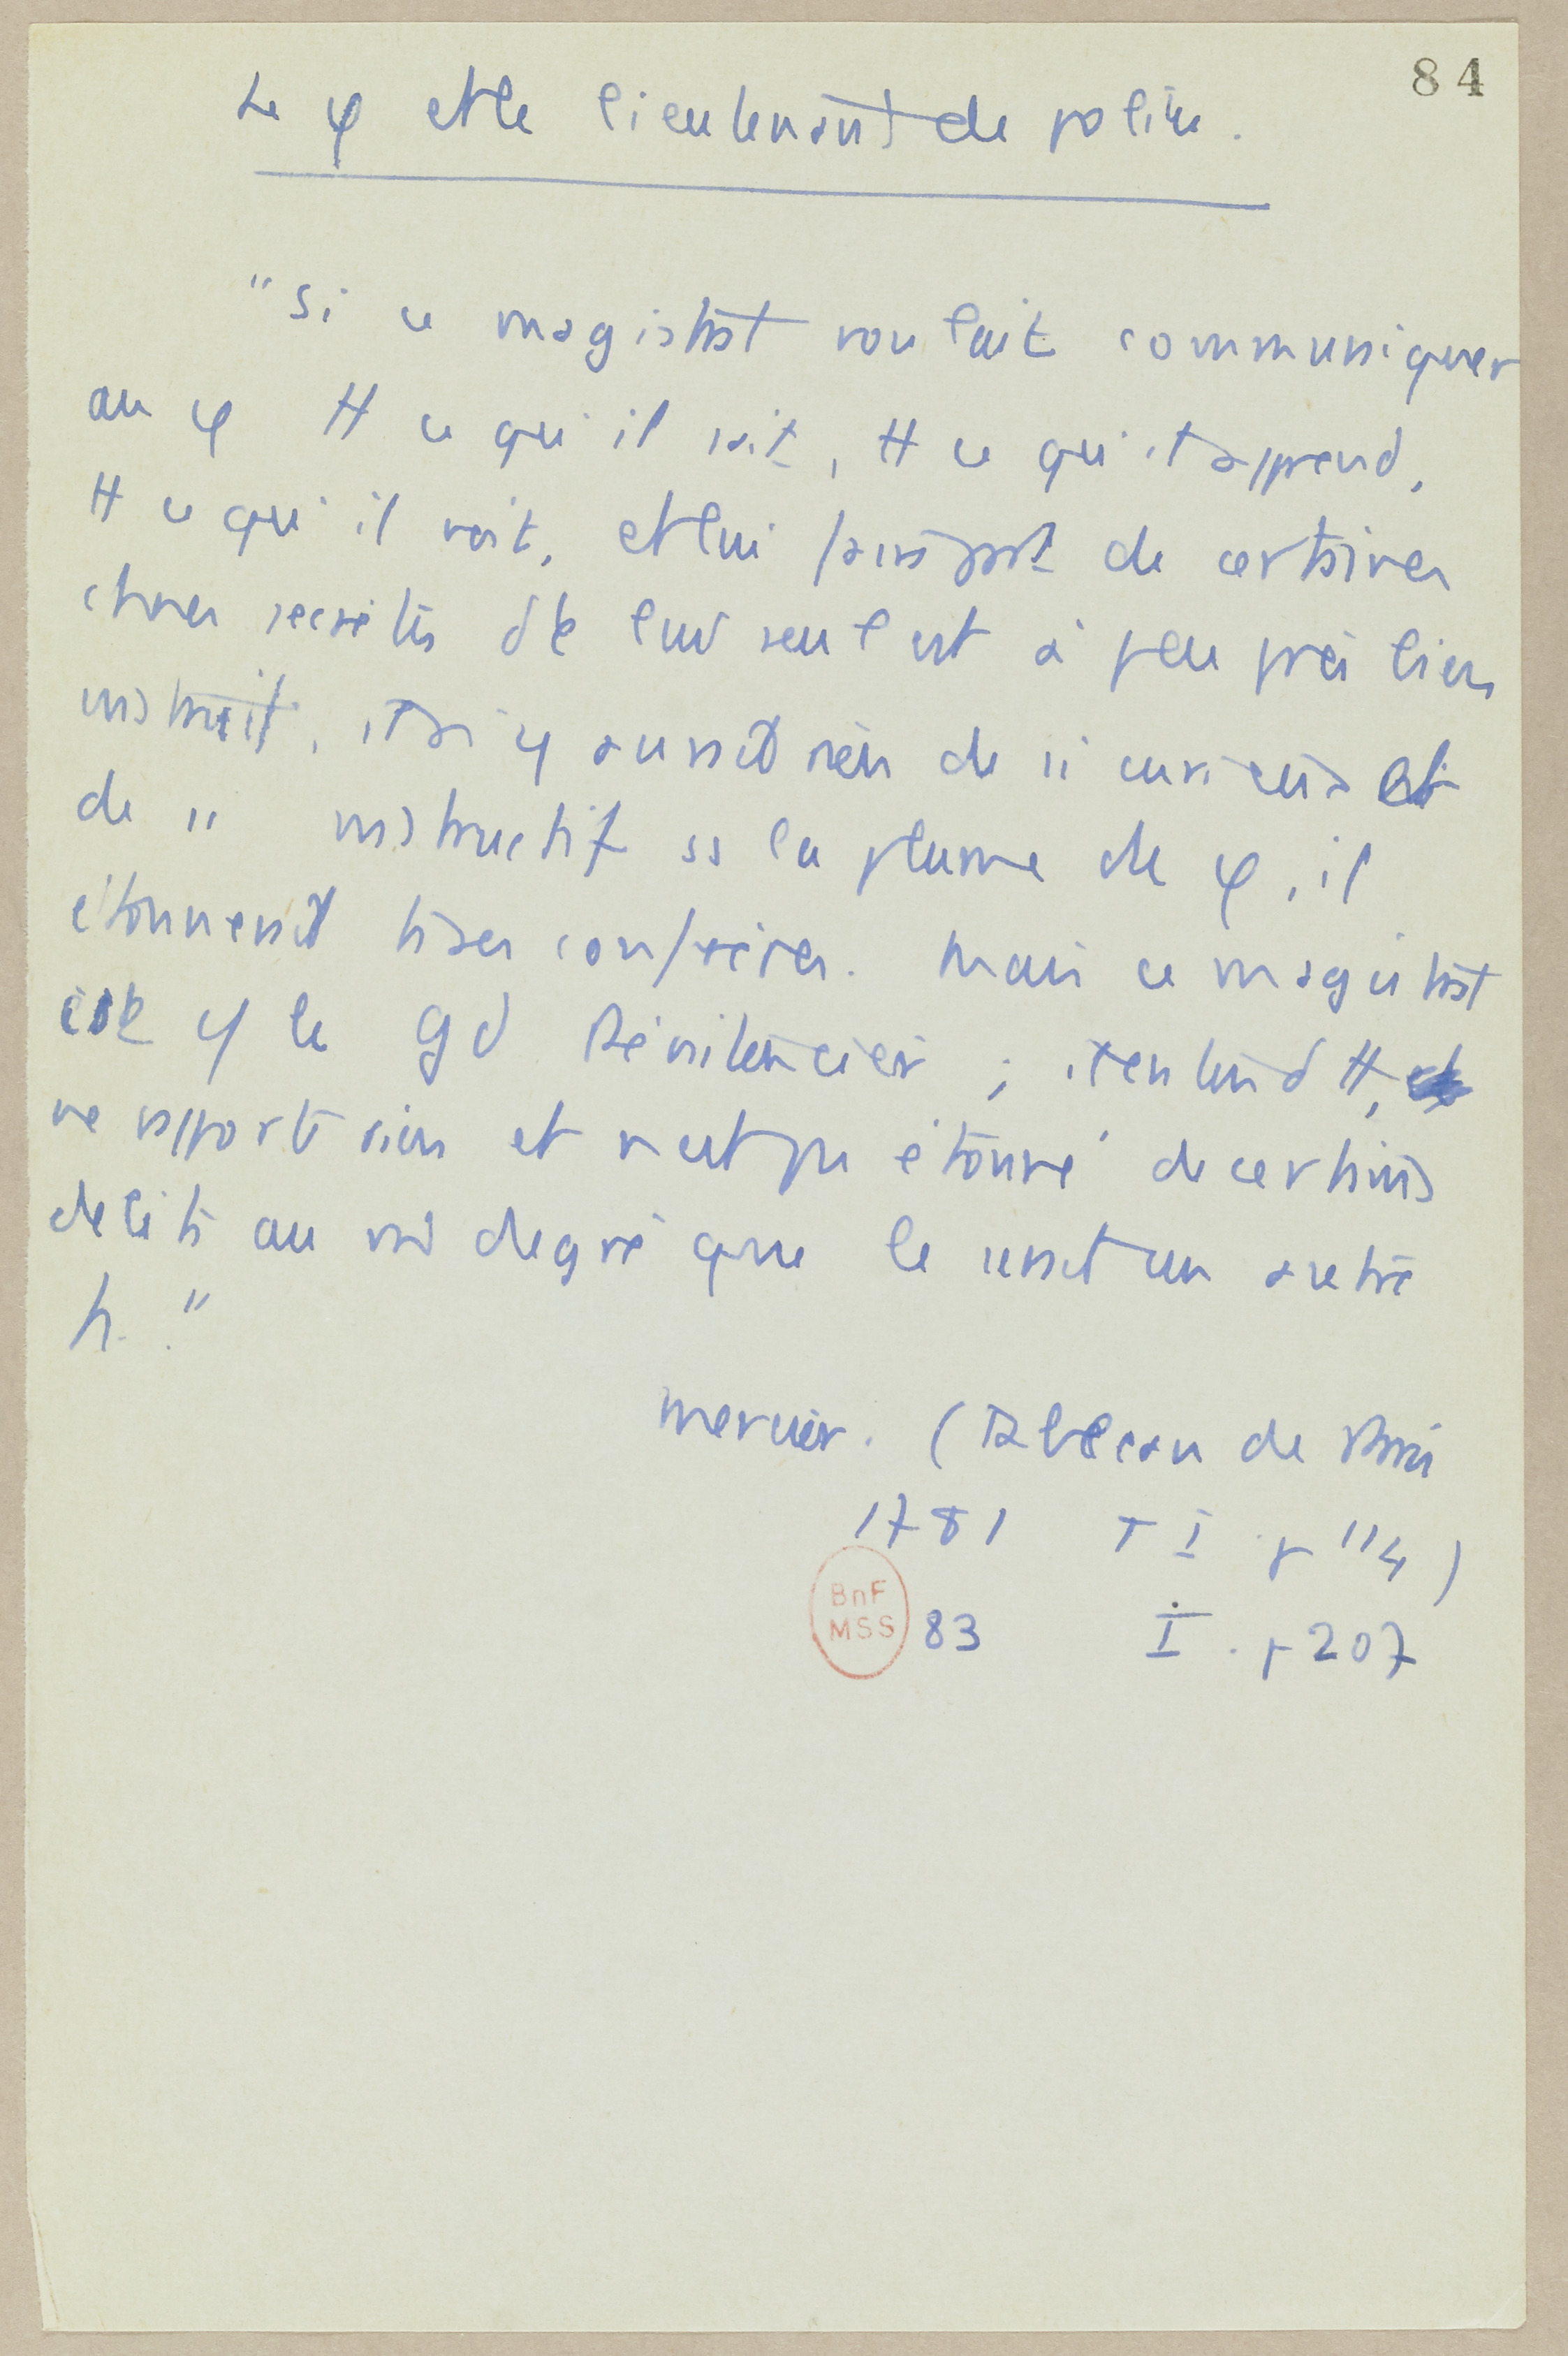 84
Le φ et le lieutenant de police.
"Si ce magistrat voulait communiquer
au φ tt ce qu'il sait, tt ce qu'il apprend,
tt ce qu'il voit, et lui faire part de certaines
choses secrètes dt lui seul est à peu près bien
instruit, il n'y aurait rien de si curieux et
de si instructif ss la plume de φ, il
étonnerait ts ses confrères. Mais ce magistrat
est le gd Pénitencier ; il entend tt,
ne rapporte rien et n'est pas étonné de certains
délits au m̂ degré que le serait un autre
h."
Mercier. (Tableau de Paris
1781 T I p 114)
83 I. p 207
BnF
MSS